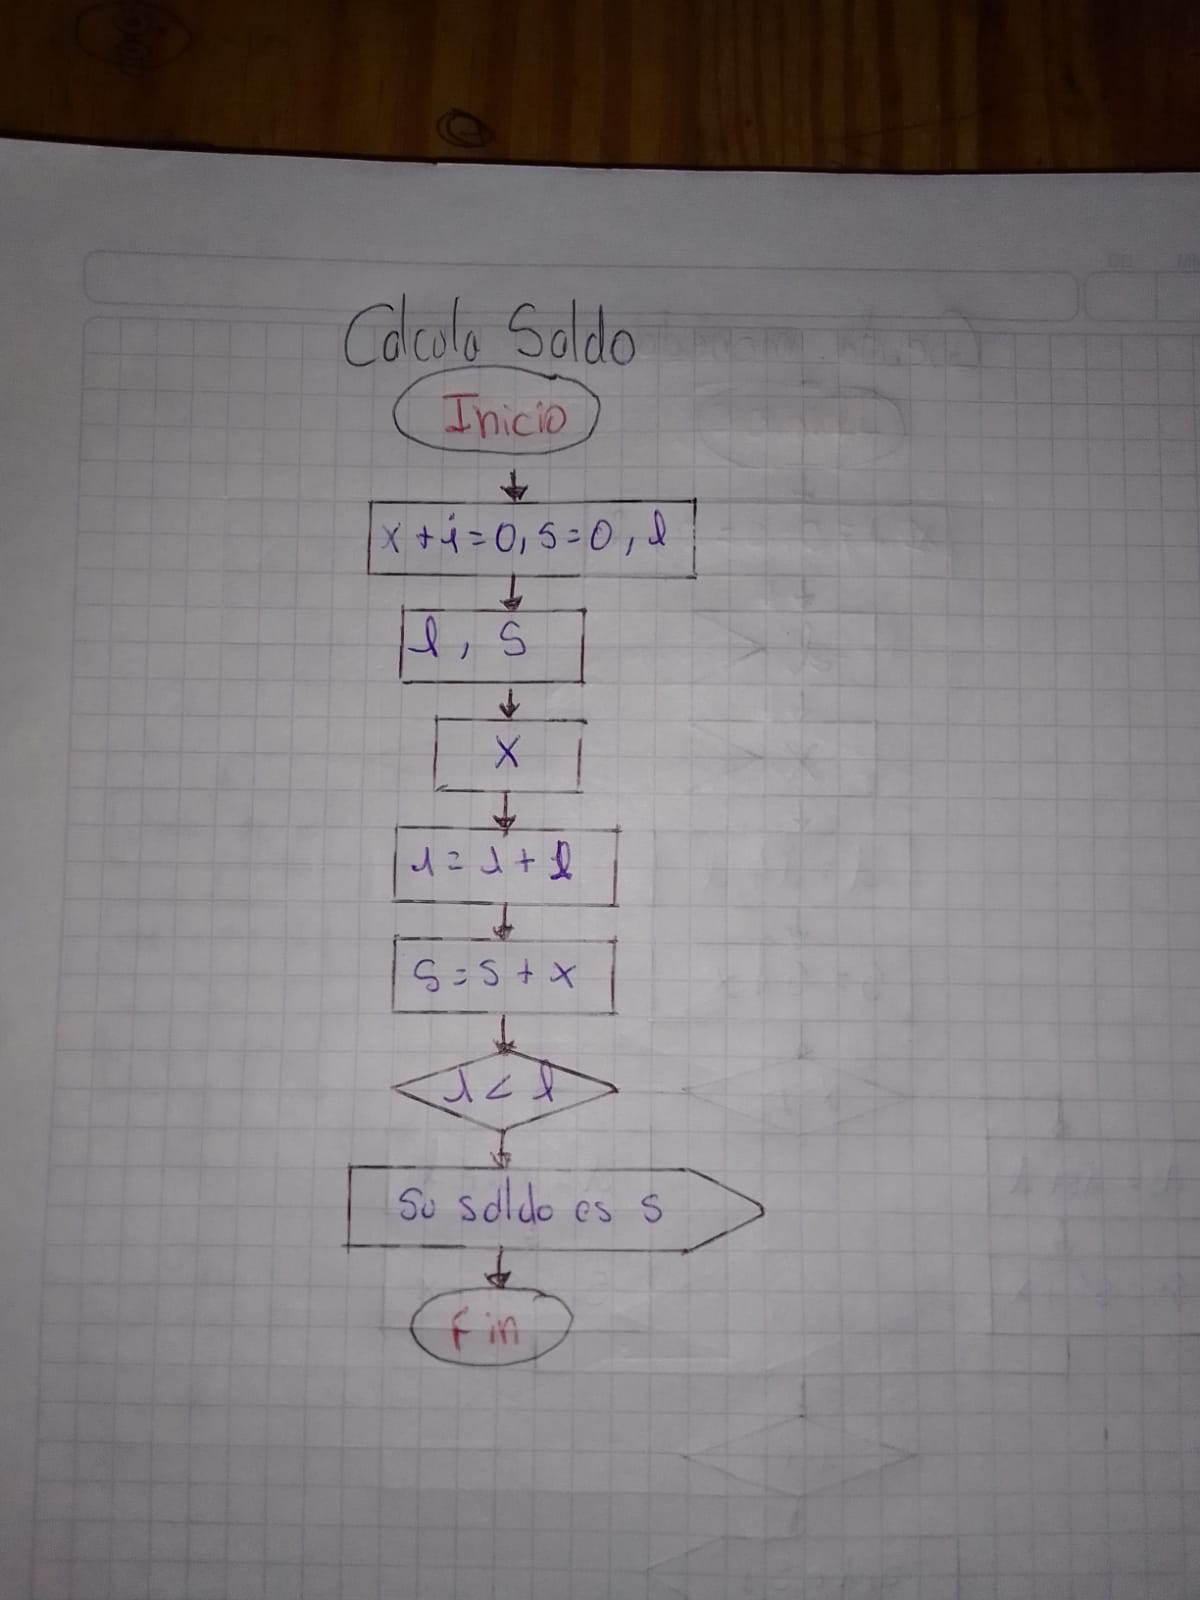 Calcula Saldo
Inicio
x + i = 0, s = 0, l
l, s
x
i = i + l
s = s + x
i < l
Su saldo es s
Fin